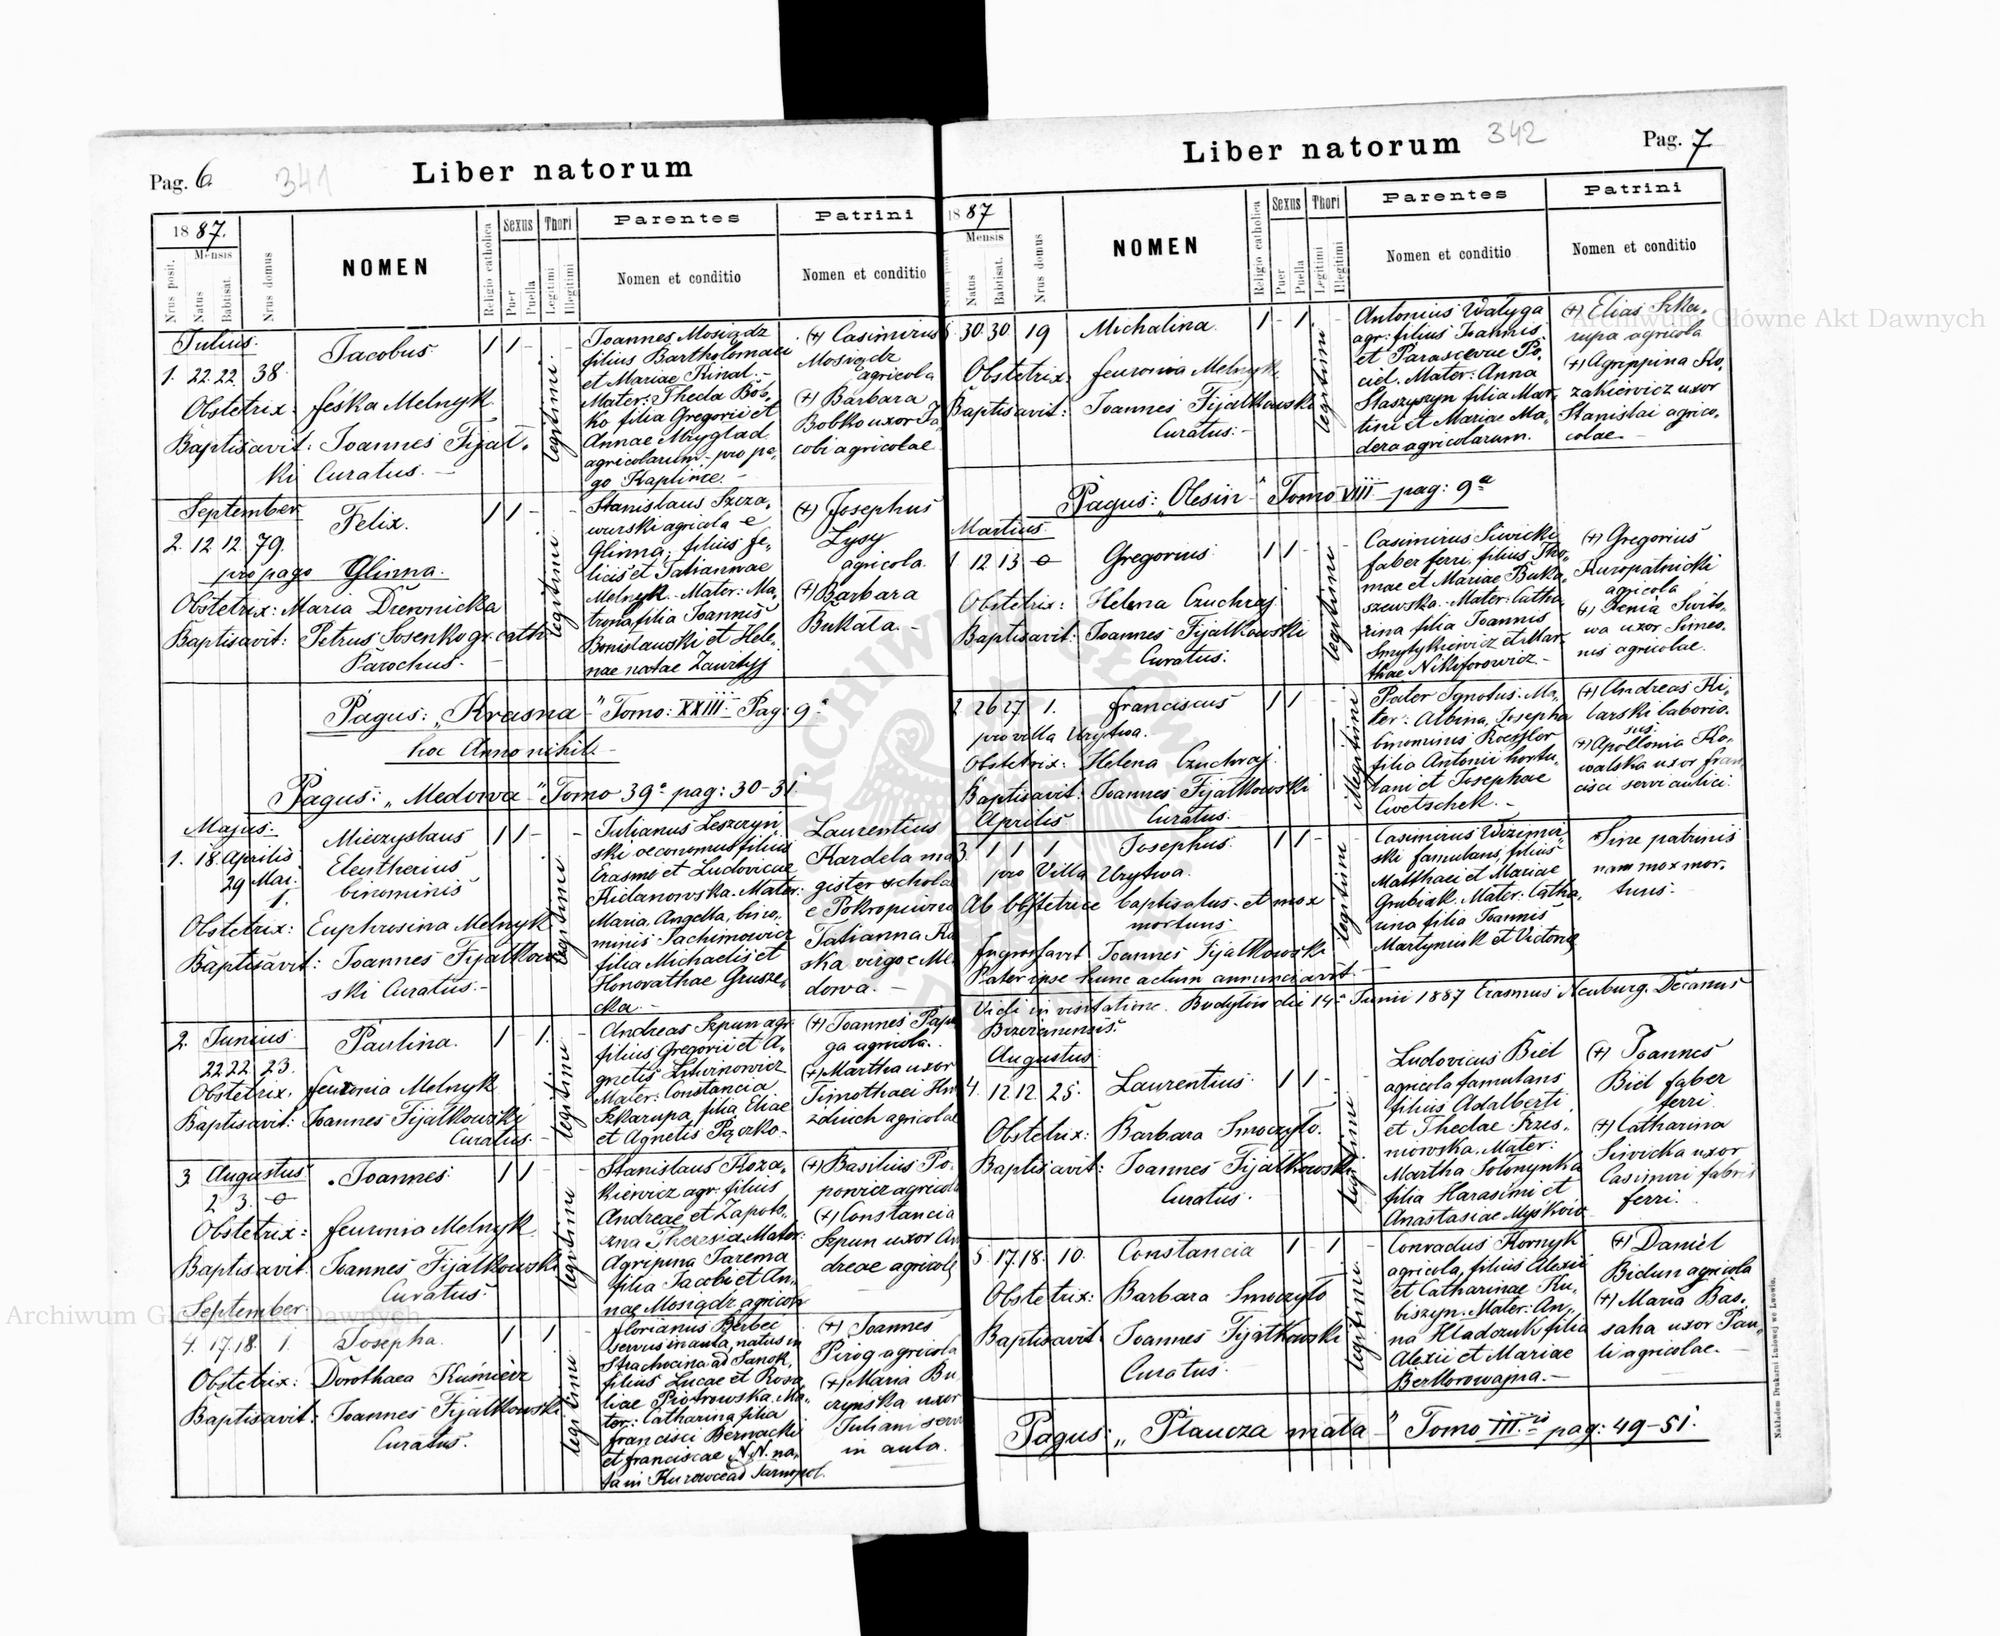 Pag. 6. 341 Liber natorum
18 87.
Mensis
Nrus posit.
Natus
Babtisat.
Nrus domus
NOMEN
Religio catholica
Sexus
Puer
Puella
Thori
Legitimi
Illegitimi
Parentes
Nomen et conditio
Patrini
Nomen et conditio
Julius.
1. 22. 22. 38.
Jacobus.
1 1 -
Obstetrix: Feśka Melnyk
Baptisavit: Joannes Fijał-
ki Curatus. —
legitimi
Joannes Mosiądz
filius Bartholomaei
et Mariae Rinal. -
Mater: Theda Bob-
ko filia Gregorii et
Annae Mryglad
agricolarum - pro pa-
go Kaplińce. -
(+) Casimirus
Mosiądz
agricola
(+) Barbara
Bobko uxor Ja
cobi agricolae
September
2. 12. 12. 79.
Felix.
1 1 -
pro pago Glinna.
Obstetrix: Maria Drewnicka
Baptisavit: Petrus Sosenko gr. cath
Parochus. -
legitimi
Stanislaus Szcza-
wurski agricola e
Glinna, filius Fe-
licis et Tatiannae
Melnyk. Mater: Ma-
trona filia Joannis
Bonislawski et Hele-
nae natae Zawitij
(+) Josephus
Łysy
agricola.
(+) Barbara
Bukata. -
Pagus: „Krasna" Tomo: XXIII Pag: 9ª
hoc Anno nihil. -
Pagus: „Medowa" Tomo 39º pag: 30-31.
Majus.
1. 18. Aprilis
29 Maj.
1.
Mieczyslaus
Eleutherius
binominis
1 1 -
Obstetrix: Euphrosina Melnyk
Baptisavit: Joannes Fijałkow
ski Curatus. -
legitimi
Julianus Leszczyń-
ski oeconomus filius
Erasmi et Ludovicae
Kidanowska. Mater:
Maria, Angella, bino-
minis Jachimowicz
filia Michaelis et
Honorathae Grusze-
cka. -
Laurentius
Kardela ma
gister schola
e Pokropiwna
Tatianna Ka
ska virgo e Me
dowa. -
2. Junius
22. 22. 23.
Paulina.
1 - 1.
Obstetrix. Feuronia Melnyk
Baptisavit: Joannes Fijałkowski
Curatus. -
legitimi
Andreas Szpun agr.
filius Gregorii et A-
gnetis Litwinowicz
Mater: Constancia
Szkarupa, filia Eliae
et Agnetis Pączko-
(+) Joannes Papu
ga agricola.
(+) Martha uxor
Timothaei Hu
zdiuch agricolae
3. Augustus
2. 3. 0
Joannes.
1 1
Obstetrix: Feuronia Melnyk
Baptisavit. Joannes Fijałkowski
Curatus.
legitimi
Stanislaus Koza-
kiewicz agr. filius
Andreae et Zapoto-
czna Theresia. Mater:
Agripina Jarema
filia Jacobi et An-
nae Mosiądz agricola
(+) Basilius Po-
powicz agricola
(+) Constancia
Szpun uxor An
dreae agricolae
September
4. 17. 18. 1.
Josepha.
1 1.
Obstetrix: Dorothaea Kuśnierz
Baptisavit: Joannes Fijałkowski
Curatus.
legitimi
Florianus Berbec
servus in aula, natus in
Strachocina ad Sanok,
filius Lucae et Rosa-
liae Piotrowska. Ma-
ter: Catharina filia
Francisci Bernacki
et Franciscae N.N. na-
ta in Kurowce ad Tarnopol.
(+) Joannes
Pirog agricola
(+) Maria Bu
czyńska uxor
Juliani servi
in aula.
Liber natorum 342 Pag. 7
18 87
Mensis
Natus
Babtisat.
Nrus domus
NOMEN
Religio catholica
Sexus
Puer
Puella
Thori
Legitimi
Illegitimi
Parentes
Nomen et conditio
Patrini
Nomen et conditio
5. 30. 30. 19
Michalina.
1 - 1.
Obstetrix: Feuronia Melnyk
Baptisavit: Joannes Fijałkowski
Curatus. -
legitimi
Antonius Wałyga
agr: filius Joannis
et Parascevae Po-
ciel. Mater: Anna
Staszyszyn filia Mar-
tini et Mariae Ma-
dera agricolarum.
(+) Elias Szka-
rupa agricola
(+) Agrippina Ko-
zakiewicz uxor
Stanislai agrico-
colae -
Pagus: „Olesin" Tomo VIII pag: 9ª
Martius.
1 12 13 0
Gregorius
1 1 -
Obstetrix: Helena Czuchraj
Baptisavit: Joannes Fijałkowski
Curatus.
legitimi
Casimirus Siwicki
faber ferri, filius Tho-
mae et Mariae Buka-
szewska. Mater: Catha-
rina filia Joannis
Smytykiewicz et Mar-
thae Nikiforowicz. -
(+) Gregorius
Kuropatnicki
agricola
(+) Xenia Swito-
wa uxor Simeo-
nis agricolae.
2 26 27 1.
Franciscus
1 1
pro villa Urytwa.
Obstetrix: Helena Czuchraj
Baptisavit: Joannes Fijałkowski
Curatus.
illegitimi
Pater Ignotus. Ma-
ter: Albina, Josepha
binominis Roessler
filia Antonii hortu-
lani et Josephae
Cwetschek. -
(+) Andreas Ki-
larski laborio-
sus.
(+) Apollonia Ko-
walska uxor Fran
cisci servi aulici.
Aprilis
3. 1 1 1
Josephus.
1 1 -
pro Villa Urytwa.
Ab obstetrice baptisatus et mox
mortuus.
Ingrossavit Joannes Fijałkowski
Pater ipse hunc actum annunciavit. -
legitimi
Casimirus Wizimir-
ski famulans, filius
Matthaei et Mariae
Grubiak. Mater: Catha-
rina filia Joannis
Martyniuk et Victoria
Sine patrinis
nam mox mor-
tuus. -
Vidi in visitatione. Budyłów die 14ª Junii 1887 Erasmus Neuburg. Decanus
Brzeżanensis.
Augustus
4. 12. 12. 25.
Laurentius.
1 1 -
Obstetrix: Barbara Smoczyło.
Baptisavit: Joannes Fijałkowski
Curatus.
legitimi
Ludovicus Biel
agricola famulans
filius Adalberti
et Thedae Trzes-
niowska. Mater:
Martha Sołonynka
filia Harasimi et
Anastasiae Myśków
(+) Joannes
Biel faber
ferri.
(+) Catharina
Siwicka uxor
Casimiri fabri
ferri.
5. 17. 18. 10.
Constancia
1 - 1
Obstetrix: Barbara Smoczyło
Baptisavit: Joannes Fijałkowski
Curatus.
legitimi
Conradus Kornyk
agricola, filius Alexii
et Catharinae Ku-
biszyn. Mater: An-
na Hladczuk filia
Alexii et Mariae
Bezkorowajna. -
(+) Daniel
Bidun agricola
(+) Maria Bas-
saha uxor Pau-
li agricolae. -
Pagus: „Płaucza mała" Tomo III.tio pag: 49-51.
Nakładem Drukarni Ludowej we Lwowie.
Archiwum Główne Akt Dawnych
Archiwum Główne Akt Dawnych